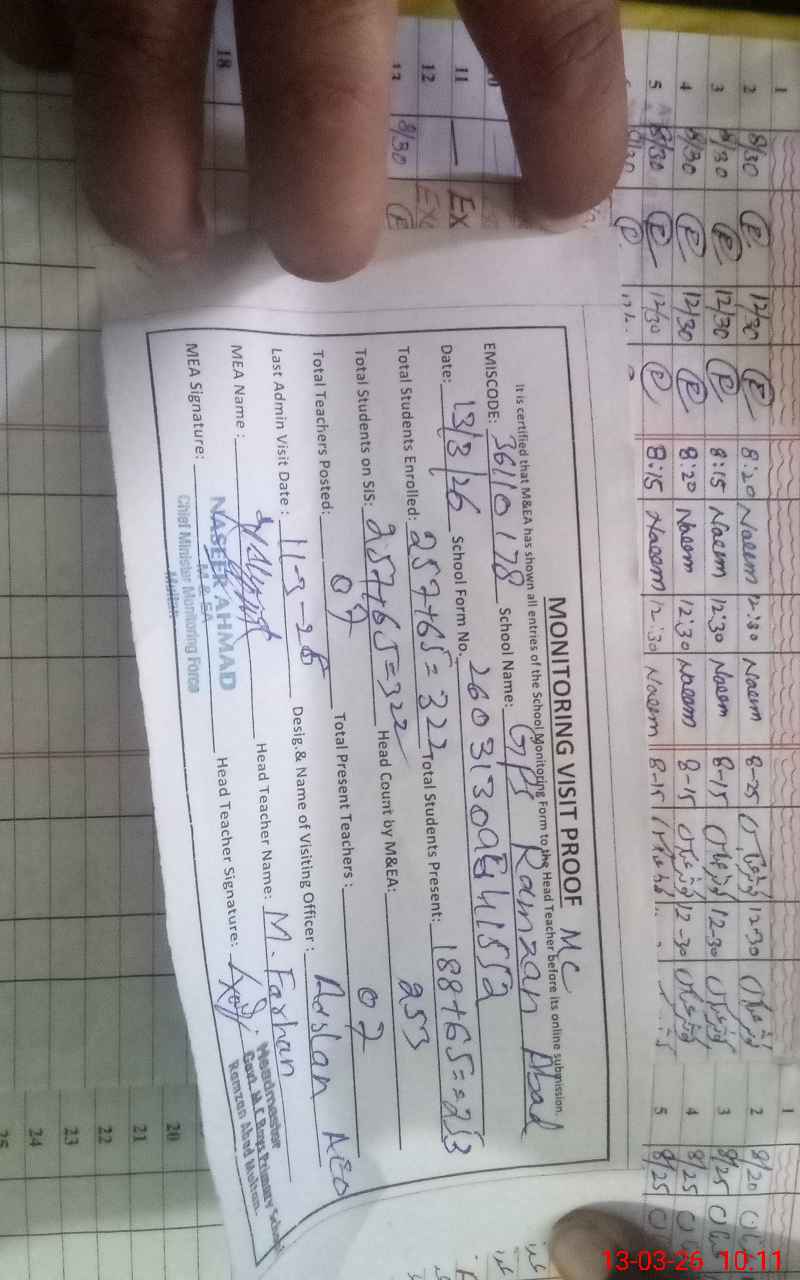 MONITORING VISIT PROOF MC
It is certified that M&EA has shown all entries of the School Monitoring Form to the Head Teacher before its online submission.
EMISCODE: 36110178 School Name: GPS Ramzan Abad
Date: 13/3/26 School Form No.
Total Students Enrolled: 257+65=322 Total Students Present: 188+65==253
Total Students on SIS: 257+65=322 Head Count by M&EA: 253
Total Teachers Posted: 07 Total Present Teachers: 07
Last Admin Visit Date: Desig.& Name of Visiting Officer: Arslan AEO
MEA Name: Head Teacher Name: M. Farhan
MEA Signature: Head Teacher Signature:
NASEER AHMAD
M & EA
Chief Minister Monitoring Force
Multan
Headmaster
Govt. M.C Boys Primary School
Ramzan Abad Multan.
1
2 8/30 P 12/30 P 8:20 Naeem 12:30 Naeem 8-25 12-30
3 8/30 P 12/30 P 8:15 Naeem 12:30 Naeem 8-15 12-30
4 8/30 P 12/30 P 8:20 Naeem 12:30 Naeem 8-15 12-30
5 8/30 P 12/30 P 8:15 Naeem 12:30 Naeem 8-15
11 — Ex
12
13 8/30 P
18
1
2 8/20
3 8/25
4 8/25
5 8/25
20
21
22
23
24
25
13-03-26 10:11